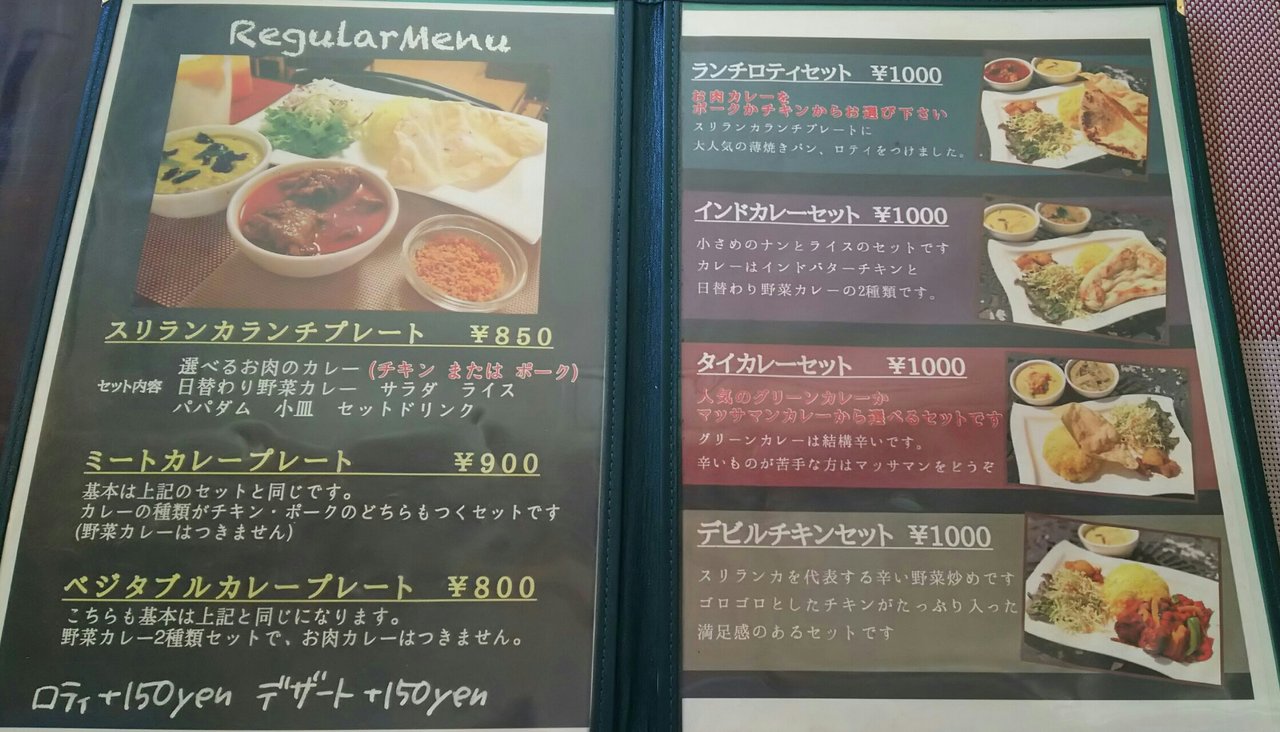 RegularMenu
スリランカランチプレート ¥850
選べるお肉のカレー (チキン または ポーク)
セット内容 日替わり野菜カレー サラダ ライス
パパダム 小皿 セットドリンク
ミートカレープレート ¥900
基本は上記のセットと同じです。
カレーの種類がチキン・ポークのどちらもつくセットです
(野菜カレーはつきません)
ベジタブルカレープレート ¥800
こちらも基本は上記と同じになります。
野菜カレー2種類セットで、お肉カレーはつきません。
ロティ+150yen デザート+150yen
ランチロティセット ¥1000
お肉カレーを
ポークかチキンからお選び下さい
スリランカランチプレートに
大人気の薄焼きパン、ロティをつけました。
インドカレーセット ¥1000
小さめのナンとライスのセットです
カレーはインドバターチキンと
日替わり野菜カレーの2種類です。
タイカレーセット ¥1000
人気のグリーンカレーか
マッサマンカレーから選べるセットです
グリーンカレーは結構辛いです。
辛いものが苦手な方はマッサマンをどうぞ
デビルチキンセット ¥1000
スリランカを代表する辛い野菜炒めです
ゴロゴロとしたチキンがたっぷり入った
満足感のあるセットです